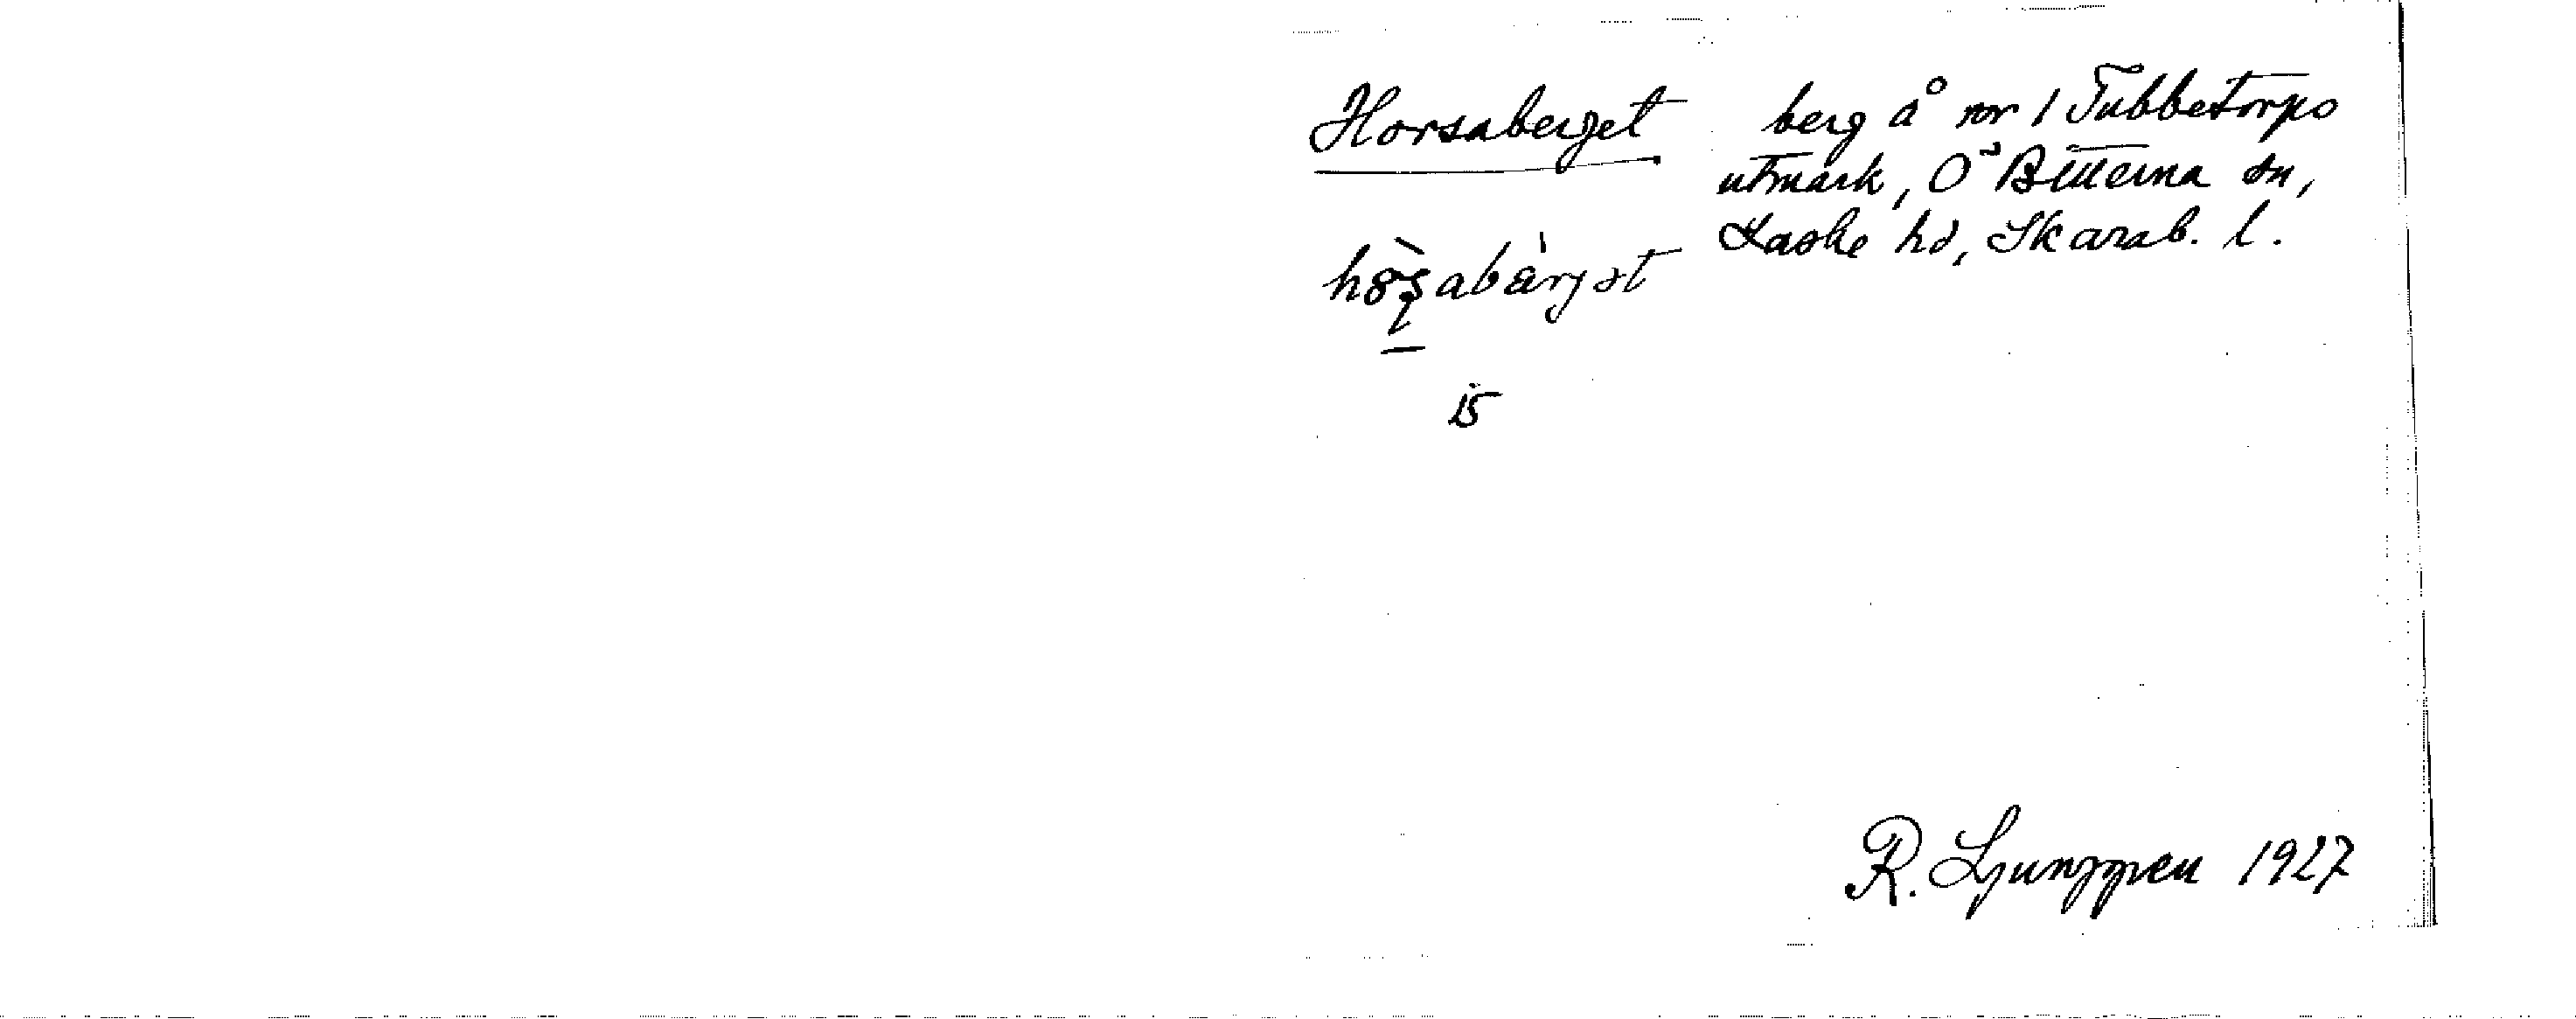 Horsaberget berg å nr 1 Tubbetorps
utmark, Ö Bitterna sn,
Laske hd, Skarab. l.
R. Ljunggren 1927